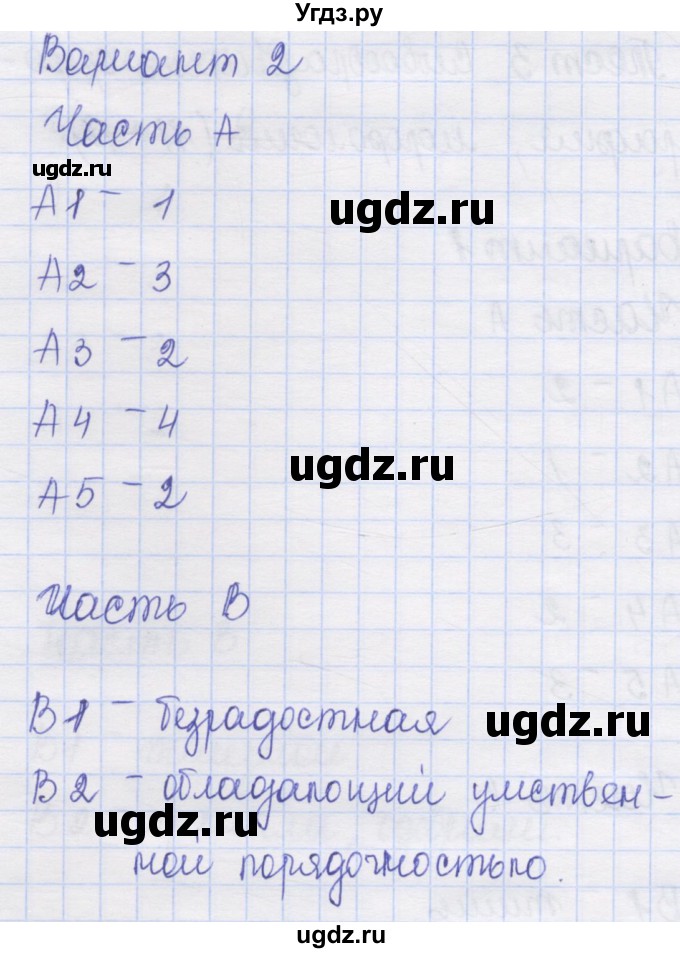 Угдз.ру
Вариант 2
Часть А
ugdz.ru
А1 – 1
ugdz.ru
А2 – 3
А3 – 2
А4 – 4
ugdz.ru
А5 – 2
Часть В
В1 – безрадостная
ugdz.ru
В2 – обладающий умствен-
ugdz.ru
ной порядочностью.
ugdz.ru